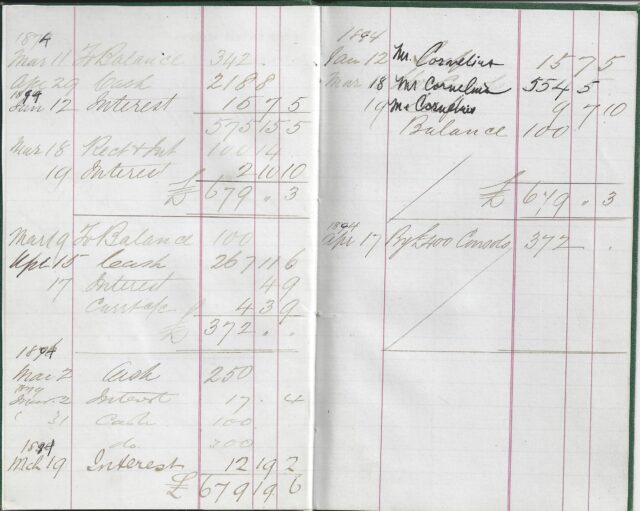 1894
Mar 11 To Balance 342 . .
Apr 29 Cash 218 8
1894
Jan 12 Interest 15 7 5
575 15 5
Mar 18 Rect & Int 100 14
19 Interest 2 10 10
£ 679 . 3
Mar 19 To Balance 100
Apl 15 Cash 267 11 6
17 Interest 4 9
Curr a/c 4 3 9
£ 372 . .
Mar 2 Cash 250
Interest 17 . 4
" 31 Cash 100
do. 300
1894
Mch 19 Interest 12 19 2
£ 679 19 6
1894
Jan 12 Mr. Cornelius 15 7 5
Mar 18 Mr Cornelius 554 5
19 Mr Cornelius 9 7 10
Balance 100
£ 679 . 3
1894
Apr 17 By £400 Consols 372 .